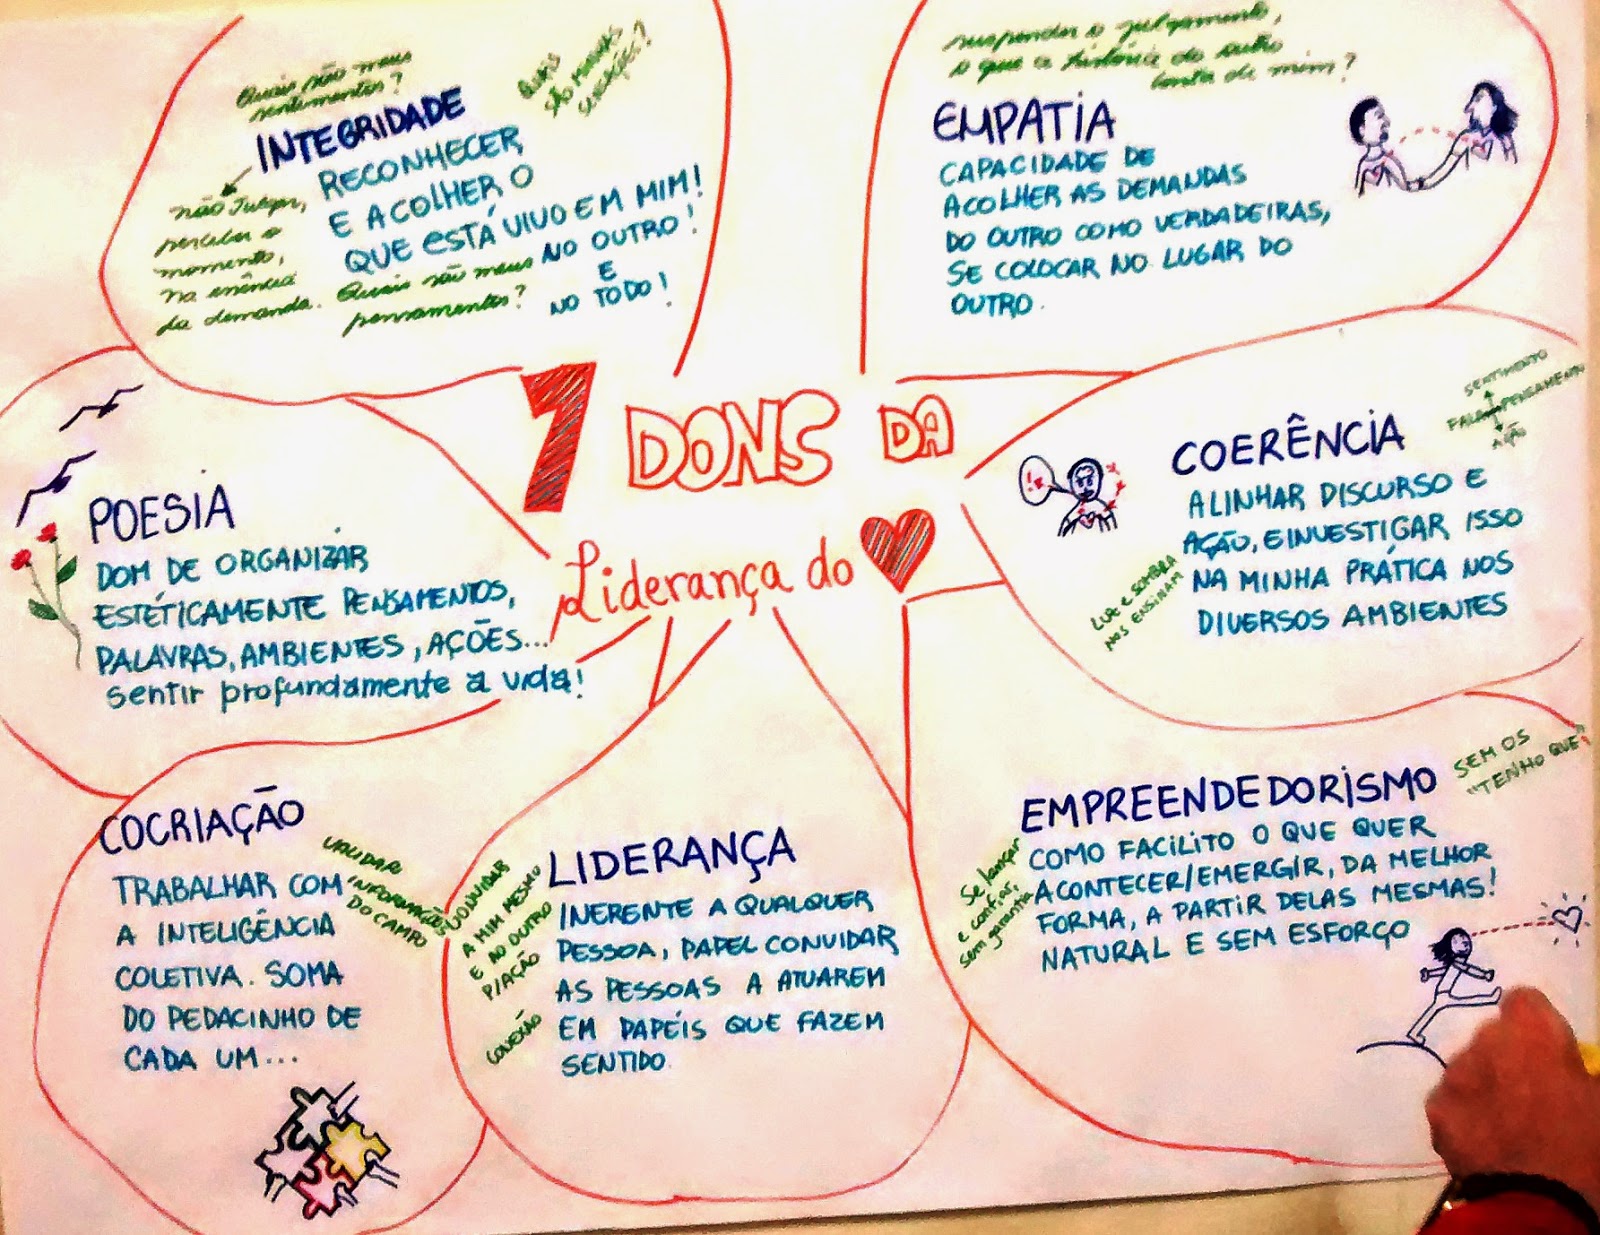 7 DONS DA
Liderança do
Quais são meus
sentimentos?
QUAIS
SÃO MINHAS
INTEGRIDADE
RECONHECER
E ACOLHER O
QUE ESTÁ VIVO EM MIM!
NO OUTRO!
E
NO TODO!
não julgar,
perceber o
momento,
na
da demanda.
Quais são meus
pensamentos?
suspender o julgamento,
o que a história do outro
conta de mim?
EMPATIA
CAPACIDADE DE
ACOLHER AS DEMANDAS
DO OUTRO COMO VERDADEIRAS,
SE COLOCAR NO LUGAR DO
OUTRO.
SENTIMENTO
FALA PENSAMENTO
AÇÃO
COERÊNCIA
ALINHAR DISCURSO E
AÇÃO, E INVESTIGAR ISSO
NA MINHA PRÁTICA NOS
DIVERSOS AMBIENTES
LUZ E SOMBRA
NOS ENSINAM
SEM OS
"TENHO QUE"
EMPREENDEDORISMO
COMO FACILITO O QUE QUER
ACONTECER/EMERGIR, DA MELHOR
FORMA, A PARTIR DELAS MESMAS!
NATURAL E SEM ESFORÇO
Se lançar
e confiar,
sem garantia
LIDERANÇA
INERENTE A QUALQUER
PESSOA, PAPEL CONVIDAR
AS PESSOAS A ATUAREM
EM PAPÉIS QUE FAZEM
SENTIDO.
CONVIDAR
A MIM MESMO
E AO OUTRO
P/AÇÃO
CONEXÃO
COCRIAÇÃO
TRABALHAR COM
A INTELIGÊNCIA
COLETIVA. SOMA
DO PEDACINHO DE
CADA UM...
VALIDAR
INFORMAÇÃO
DO CAMPO
POESIA
DOM DE ORGANIZAR
ESTÉTICAMENTE PENSAMENTOS,
PALAVRAS, AMBIENTES, AÇÕES...
sentir profundamente a vida!